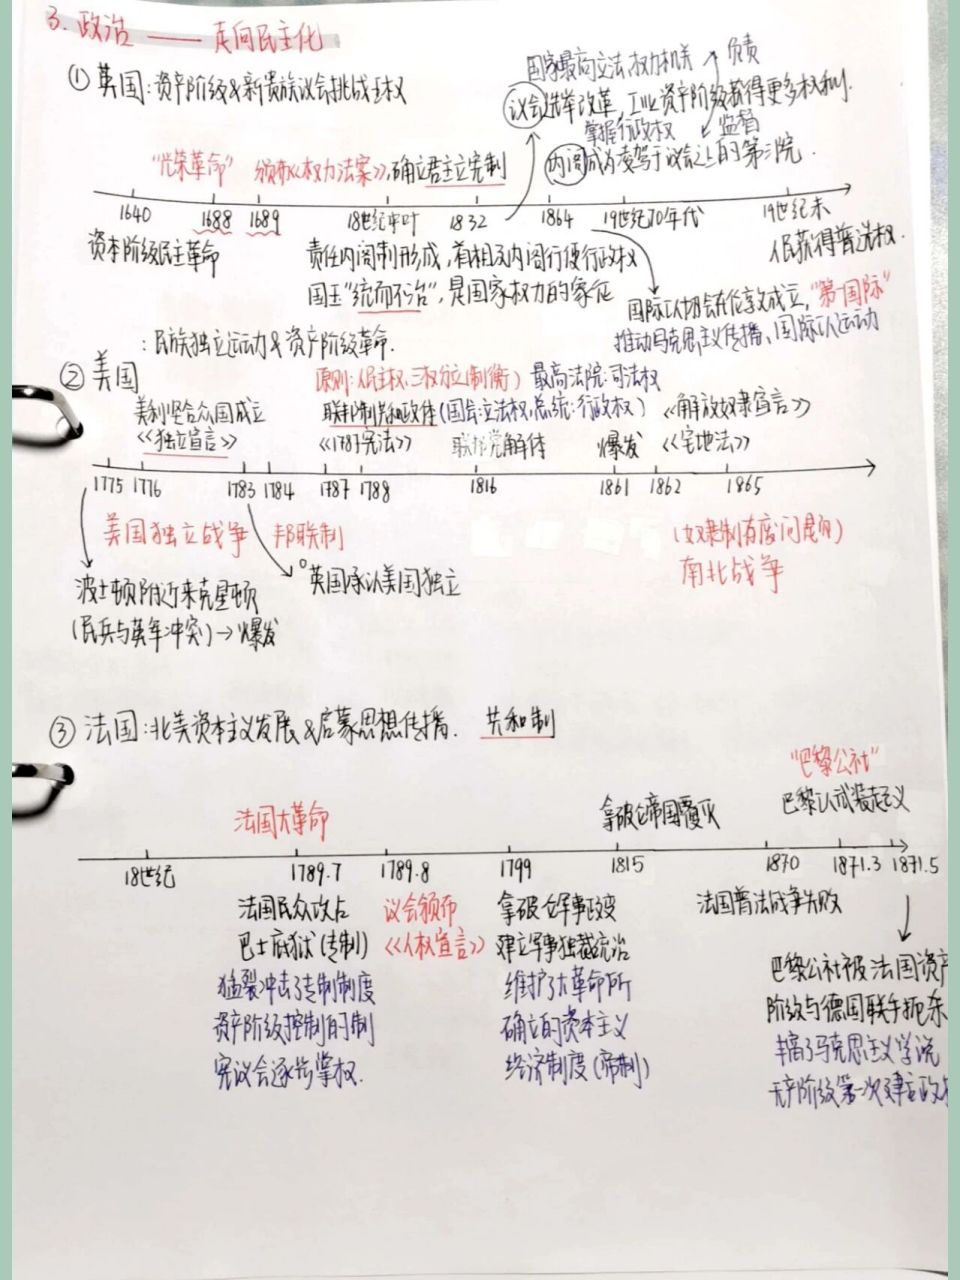 3. 政治 —— 走向民主化
① 英国：资产阶级&新贵族议会挑战王权
国家最高立法、权力机关 负责
议会选举改革，工业资产阶级获得更多权利.
掌握行政权 监督
内阁成为凌驾于议会之上的第三院.
"光荣革命" 颁布《权力法案》，确立君主立宪制
1640 1688 1689 18世纪中叶 1832 1864 19世纪70年代 19世纪末
资本阶级民主革命
责任内阁制形成，首相及内阁行使行政权
国王"统而不治"，是国家权力的象征
人民获得普选权.
国际工人协会在伦敦成立，"第一国际"
推动马克思主义传播、国际工人运动
：民族独立运动&资产阶级革命.
② 美国
原则：人民主权、三权分立(制衡) 最高法院：司法权
美利坚合众国成立 联邦制共和政体(国会：立法权，总统：行政权) 《解放奴隶宣言》
《独立宣言》 《1787宪法》 联邦党解体 爆发 《宅地法》
1775 1776 1783 1784 1787 1788 1816 1861 1862 1865
美国独立战争 邦联制 (奴隶制有废问题)
英国承认美国独立 南北战争
波士顿附近来克星顿
(民兵与英军冲突)→爆发
③ 法国：北美资本主义发展&启蒙思想传播. 共和制
"巴黎公社"
法国大革命 拿破仑帝国覆灭 巴黎人武装起义
18世纪 1789.7 1789.8 1799 1815 1870 1871.3 1871.5
法国民众攻占 议会颁布 拿破仑军事政变 法国普法战争失败
巴士底狱(专制) 《人权宣言》 建立军事独裁统治
猛裂冲击了专制制度 维护了大革命所
资产阶级控制的制 确立的资本主义
宪议会逐步掌权. 经济制度(帝制)
巴黎公社被法国资产
阶级与德国联手扼杀
丰富了马克思主义学说
无产阶级第一次建立政